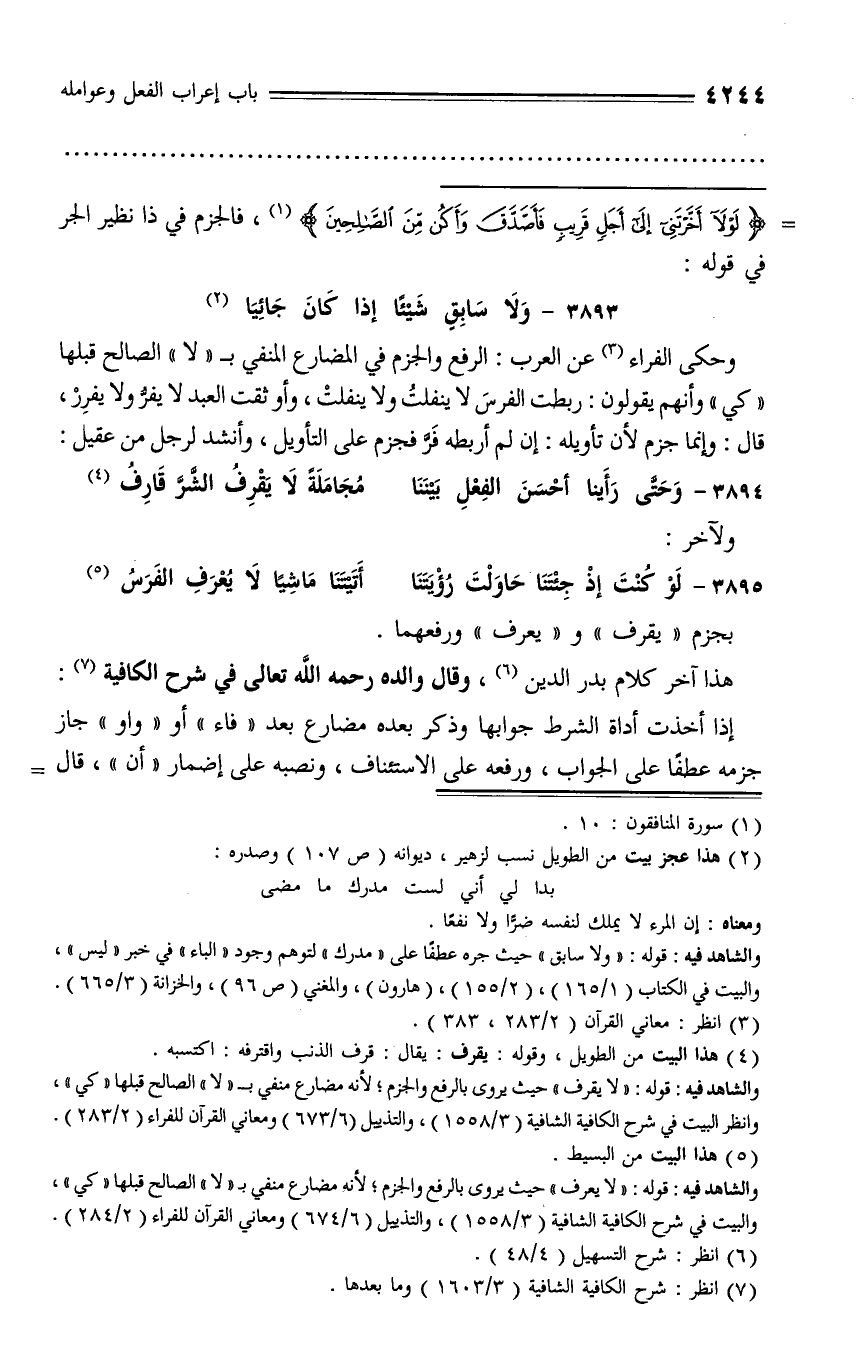 ٤٢٤٤ باب إعراب الفعل وعوامله
................................................................
= ﴿ لَوْلَآ أَخَّرْتَنِىٓ إِلَىٰٓ أَجَلٍ قَرِيبٍ فَأَصَّدَّقَ وَأَكُن مِّنَ ٱلصَّـٰلِحِينَ ﴾ (١) ، فالجزم في ذا نظير الجر
في قوله :
٣٨٩٣ - وَلَا سَابِقٍ شَيْئًا إذا كَانَ جَائِيَا (٢)
وحكى الفراء (٣) عن العرب : الرفع والجزم في المضارع المنفي بـ « لا » الصالح قبلها
« كي » وأنهم يقولون : ربطت الفرسَ لا ينفلتُ ولا ينفلتْ ، وأوثقت العبد لا يفرُّ ولا يفرِرْ ،
قال : وإنما جزم لأن تأويله : إن لم أربطه فَرَّ فجزم على التأويل ، وأنشد لرجل من عقيل :
٣٨٩٤ - وَحَتَّى رَأَينا أحْسَنَ الفِعْلِ بَيْنَنَا مُجَامَلَةً لَا يَقْرِفُ الشَّرَّ قَارِفُ (٤)
ولآخر :
٣٨٩٥ - لَوْ كُنْتَ إذْ جِئْتَنَا حَاوَلْتَ رُؤْيَتَنَا أَتَيْتَنَا مَاشِيًا لَا يُعْرَفِ الفَرَسُ (٥)
بجزم « يقرف » و « يعرف » ورفعهما .
هذا آخر كلام بدر الدين (٦) ، وقال والده رحمه الله تعالى في شرح الكافية (٧) :
إذا أخذت أداة الشرط جوابها وذكر بعده مضارع بعد « فاء » أو « واو » جاز
جزمه عطفًا على الجواب ، ورفعه على الاستئناف ، ونصبه على إضمار « أن » ، قال =
(١) سورة المنافقون : ١٠ .
(٢) هذا عجز بيت من الطويل نسب لزهير ، ديوانه ( ص ١٠٧ ) وصدره :
بدا لي أني لست مدرك ما مضى
ومعناه : إن المرء لا يملك لنفسه ضرًّا ولا نفعًا .
والشاهد فيه : قوله : « ولا سابق » حيث جره عطفًا على « مدرك » لتوهم وجود « الباء » في خبر « ليس » ،
والبيت في الكتاب ( ١٦٥/١ ) ، ( ١٥٥/٢ ) ، ( هارون ) ، والمغني ( ص ٩٦ ) ، والخزانة ( ٦٦٥/٣ ) .
(٣) انظر : معاني القرآن ( ٢٨٣/٢ ، ٣٨٣ ) .
(٤) هذا البيت من الطويل ، وقوله : يقرف : يقال : قرف الذنب واقترفه : اكتسبه .
والشاهد فيه : قوله : « لا يقرف » حيث يروى بالرفع والجزم ؛ لأنه مضارع منفي بـ « لا » الصالح قبلها « كي » ،
وانظر البيت في شرح الكافية الشافية ( ١٥٥٨/٣ ) ، والتذييل ( ٦٧٣/٦ ) ومعاني القرآن للفراء ( ٢٨٣/٢ ) .
(٥) هذا البيت من البسيط .
والشاهد فيه : قوله : « لا يعرف » حيث يروى بالرفع والجزم ؛ لأنه مضارع منفي بـ « لا » الصالح قبلها « كي » ،
والبيت في شرح الكافية الشافية ( ١٥٥٨/٣ ) ، والتذييل ( ٦٧٤/٦ ) ومعاني القرآن للفراء ( ٢٨٤/٢ ) .
(٦) انظر : شرح التسهيل ( ٤٨/٤ ) .
(٧) انظر : شرح الكافية الشافية ( ١٦٠٣/٣ ) وما بعدها .